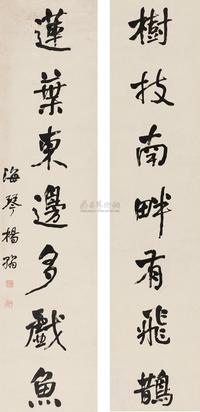 樹枝南畔有飛鵲
蓮葉東邊多戲魚
海琴楊翰